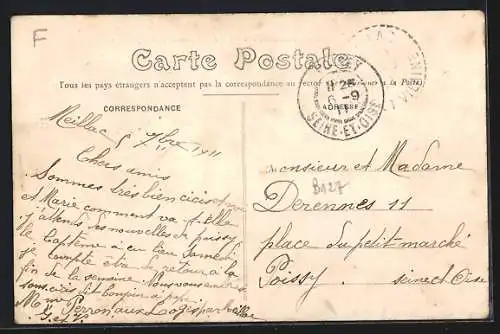 F
Carte Postale
Tous les pays étrangers n'acceptent pas la correspondance au recto
CORRESPONDANCE
ADRESSE
POISSY
11 25
6 - 9
11
SEINE-ET-OISE
Meillac 5 7bre 1911
Chers amis
Sommes très bien ici et
et Marie comment va-t-elle
J'attends des nouvelles de poissy
le baptême a eu lieu Samedi
je compte être de retour à la
fin de la semaine. Nous vous
Mme Perron aux Logis par
G. et V.
Monsieur et Madame
B127
Derennes 11
place du petit marché
Poissy. Seine et Oise